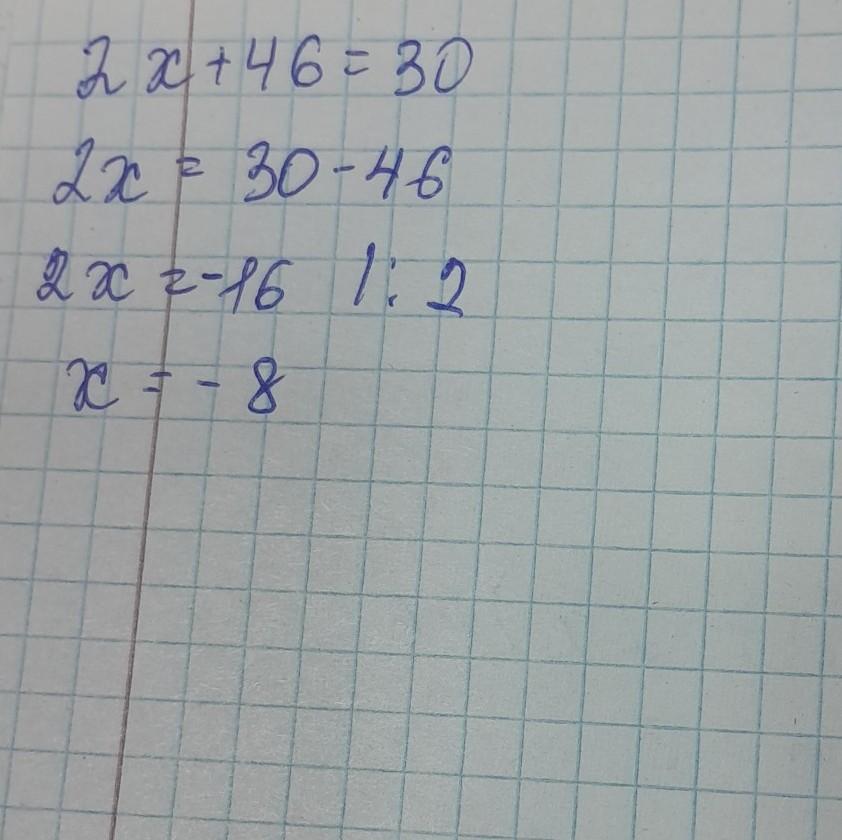 2x+46=30
2x = 30-46
2x =-16 |: 2
x = - 8